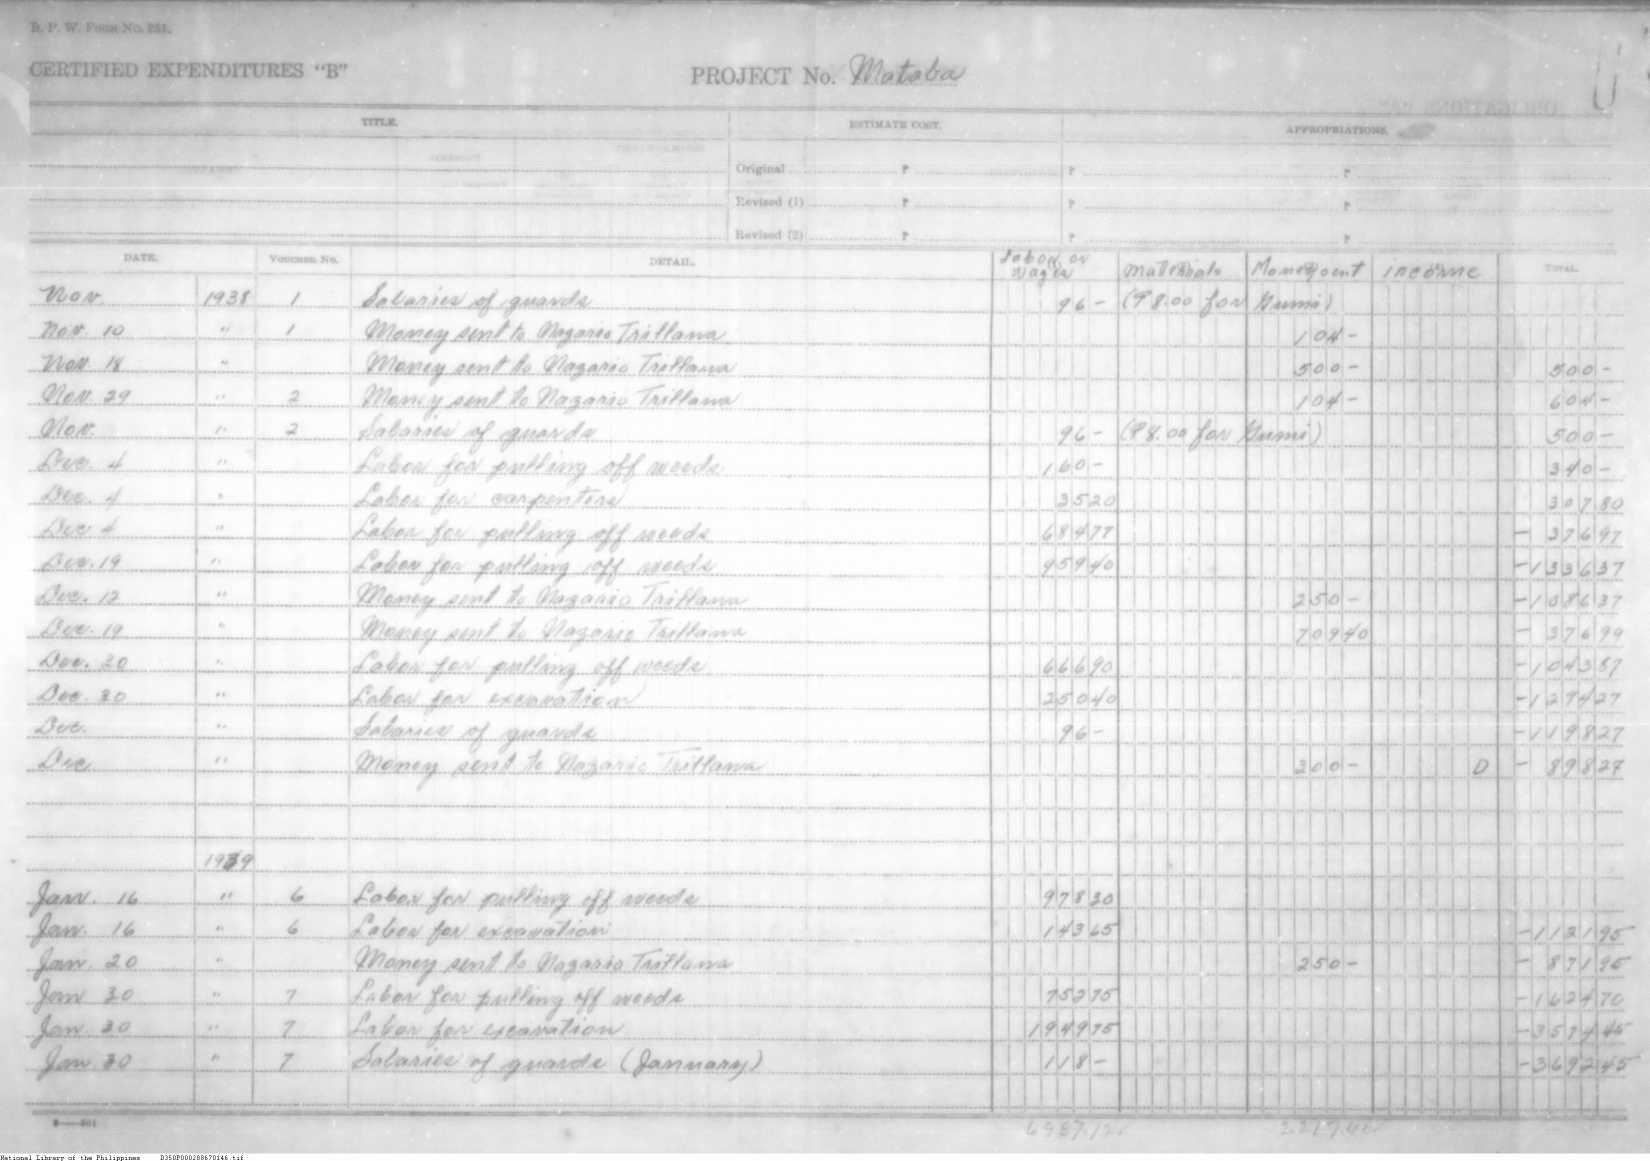 B. P. W. Form No. 251.
CERTIFIED EXPENDITURES "B"
PROJECT No. Mataba
TITLE.
ESTIMATE COST.
APPROPRIATIONS.
Original ₱ ₱ ₱
Revised (1) ₱ ₱ ₱
Revised (2) ₱ ₱ ₱
DATE. VOUCHER No. DETAIL. Labor or Wages Materials Money sent income TOTAL.
Nov. 1938 1 Salaries of guards 96 – (₱8.00 for Gumi)
Nov. 10 " 1 Money sent to Nazario Trillana 104 –
Nov. 18 " Money sent to Nazario Trillana 500 – 500 –
Nov. 29 " 2 Money sent to Nazario Trillana 104 – 604 –
Nov. " 2 Salaries of guards 96 – (₱8.00 for Gumi) 500 –
Dec. 4 " Labor for pulling off weeds 160 – 340 –
Dec. 4 " Labor for carpenters 35 20 307 80
Dec 4 " Labor for pulling off weeds 684 77 – 376 97
Dec. 19 " Labor for pulling off weeds 959 40 – 1336 37
Dec. 12 " Money sent to Nazario Trillana 250 – – 1086 37
Dec. 19 " Money sent to Nazario Trillana 709 40 – 376 99
Dec. 30 " Labor for pulling off weeds 666 90 – 1043 87
Dec. 30 " Labor for excavation 250 40 – 1294 27
Dec. " Salaries of guards 96 – – 1198 27
Dec " Money sent to Nazario Trillana 300 – D – 898 27
1939
Jan. 16 " 6 Labor for pulling off weeds 978 30
Jan. 16 " 6 Labor for excavation 143 65 – 1121 95
Jan. 20 " Money sent to Nazario Trillana 250 – – 871 95
Jan 30 " 7 Labor for pulling off weeds 752 75 – 1624 70
Jan. 30 " 7 Labor for excavation 1949 75 – 3574 45
Jan. 30 " 7 Salaries of guards (January) 118 – – 3692 45
National Library of the Philippines D350P000288670146.tif